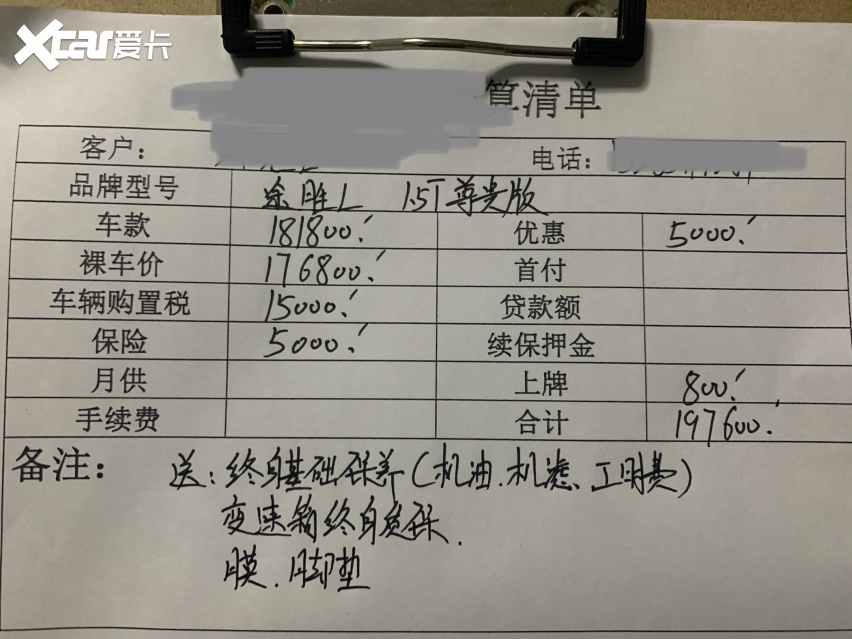 Xcar爱卡
算清单
客户： 电话：
品牌型号 途胜L 1.5T尊贵版
车款 181800. 优惠 5000.
裸车价 176800. 首付
车辆购置税 15000. 贷款额
保险 5000. 续保押金
月供 上牌 800.
手续费 合计 197600.
备注： 送：终身基础保养(机油、机滤、工时费)
变速箱终身质保.
膜、脚垫